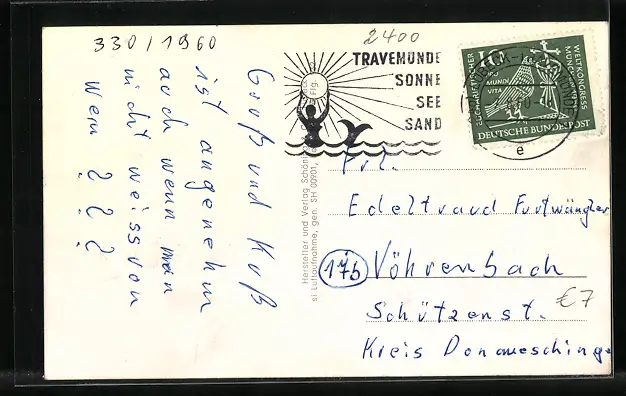 330/1960
2400
Gruß und Kuß
ist angenehm
auch wenn man
nicht weiss von
wem ???
TRAVEMÜNDE
SONNE
SEE
SAND
10
MUNDI
VITA
WELTKONGRESS
MÜNCHEN
DEUTSCHE BUNDESPOST
e
Hersteller und Verlag Schöning
Luftaufnahme, gen. SH 00901,
Frl.
Edeltraud Furtwängler
(17b) Vöhrenbach
Schützenst.
Kreis Donaueschinge
€7